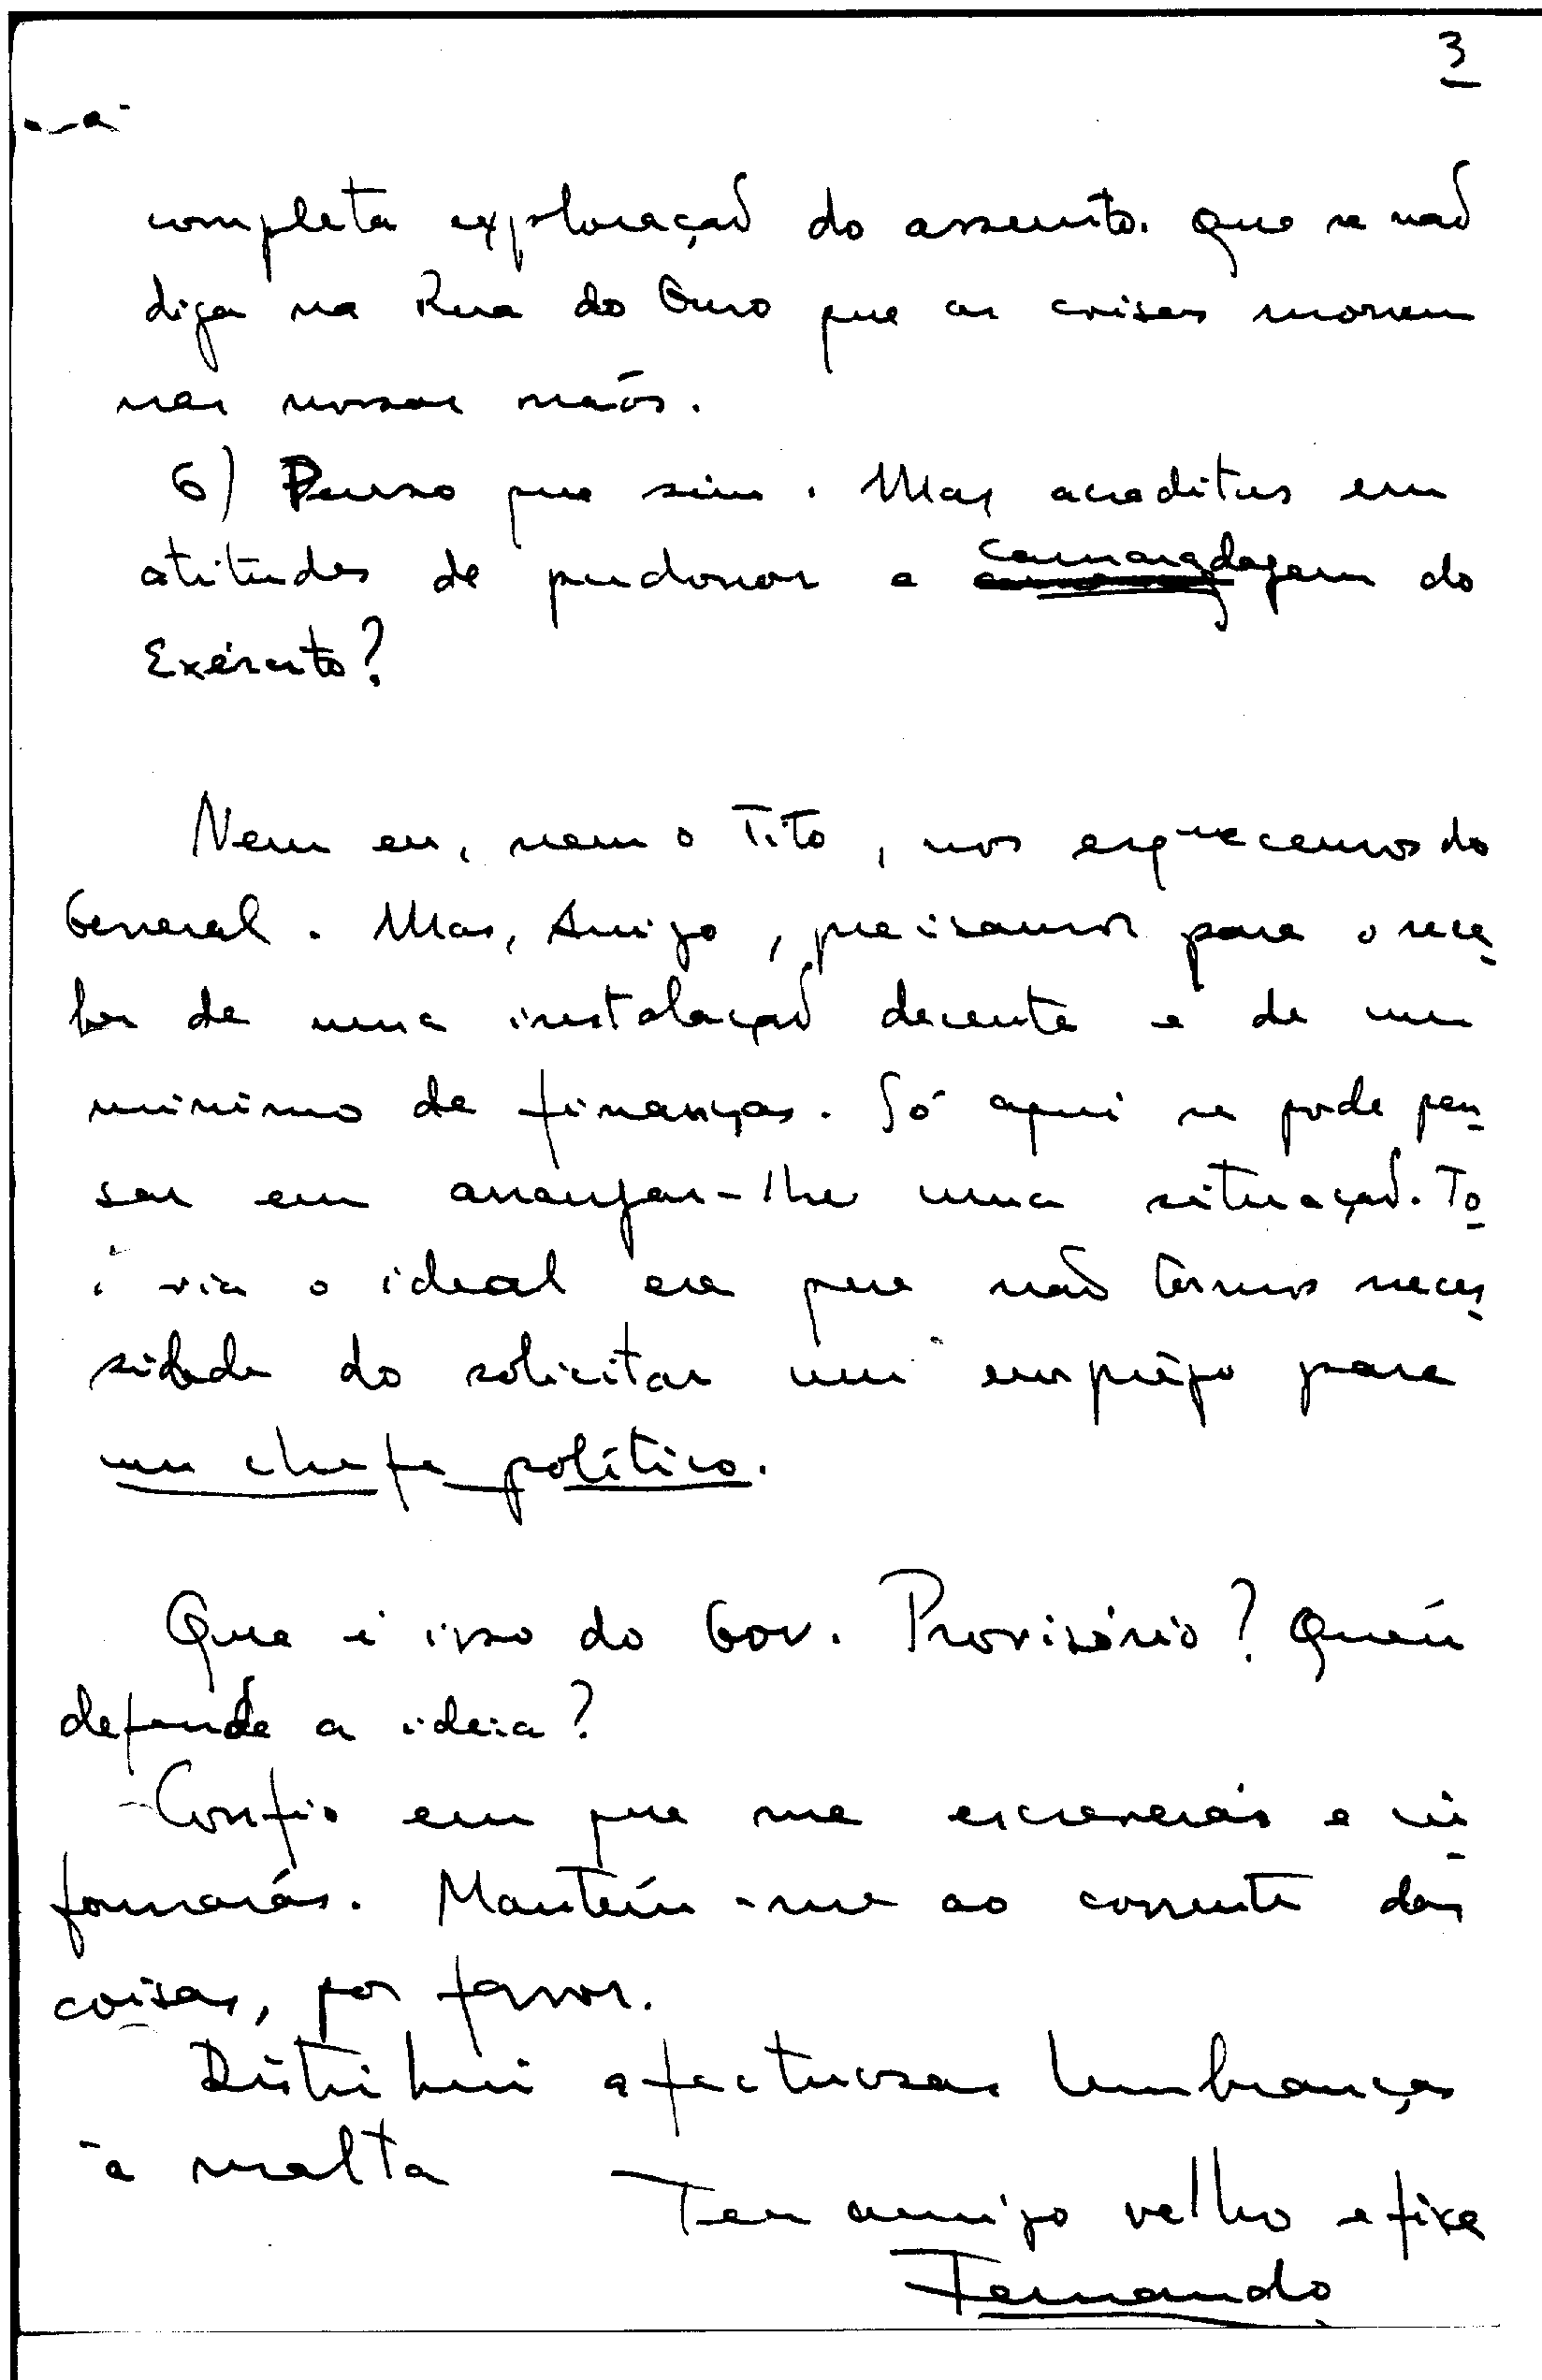 3
completa exploração do assunto. Que se não
diga na Rua do Ouro que as crises morrem
nas nossas mãos.
6) Penso que sim. Mas acreditas em
atitudes de pundonor e camaradagem do
Exército?
Nem eu, nem o Tito, nos esquecemos do
General. Mas, Amigo, precisamos para o rece
ber de uma instalação decente e de um
minimo de finanças. Só aqui se pode pen
sar em arranjar-lhe uma situação. To
via o ideal era que não termos neces
sidade do solicitar um emprêgo para
um chefe político.
Que é isso do Gov. Provisório? Quem
defende a ideia?
Confio em que me escreverás e in
formarás. Mantém-me ao corrente das
coisas, por favor.
Distribui afectuosas lembranças
à malta
Teu amigo velho e fixe
Fernando